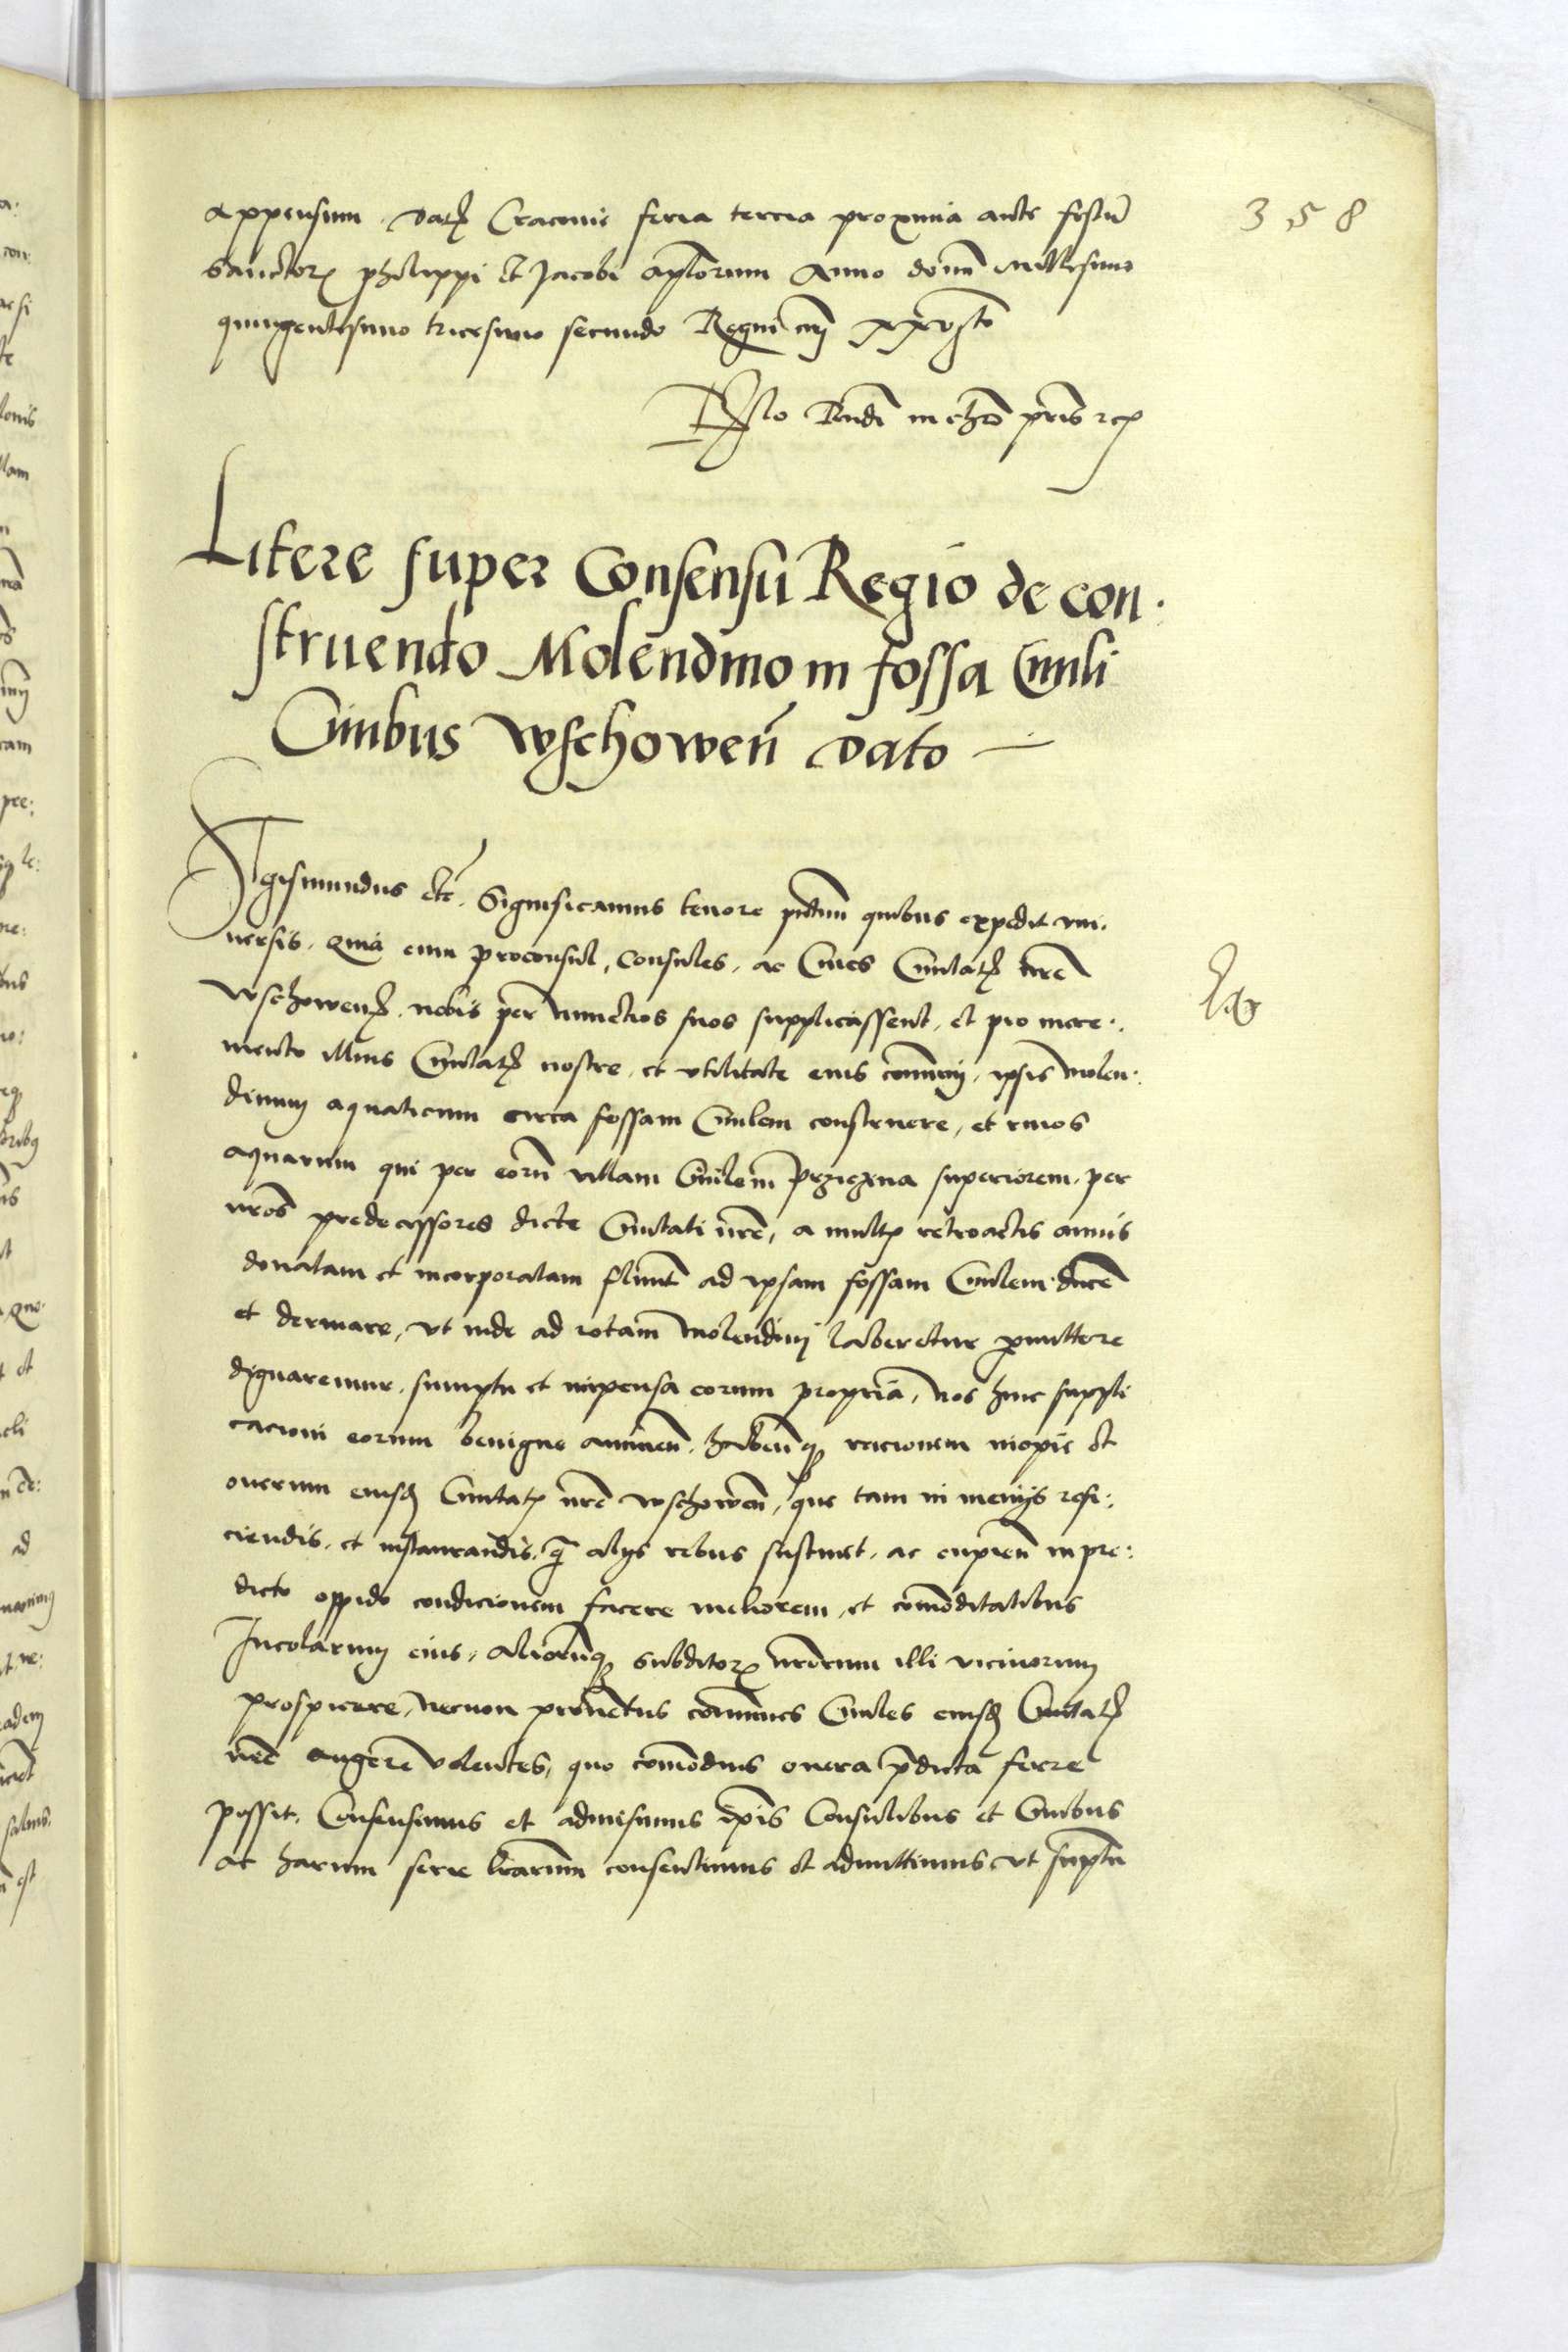 358
appensum. Datꝭ Cracovie feria tercia proxima ante festū
Sanctorꝝ philippi et Jacobi apl̄orum Anno domī Millesimo
quingentesimo tricesimo secundo Regni n̄rj xxvj̊to
Rel̄o Rn̄di in chr̄o pr̄is rcꝭ
Litere super Consensū Regio de con.
struendo Molendino in fossa Civili
Civibus Wschoweñ dato
Sigismundus etc̄. Significamus tenore pn̄tium quibus expedit vni.
uersis. Quia cum proconsul, Consules, ac Ciues Ciuitatꝭ nr̄e
Wschowenꝭ. nobis per nunctios suos supplicassent, et pro incre:
mento illius Ciuitatꝭ nostre, et vtilitate eius com̄unj, ipsis molen:
dinum aquaticum circa fossam Ciuilem construere, et riuos
aquarum qui per eorū villam Ciuilem Przieczina superiorem, per
nr̄os predecessores dicte Ciuitati nr̄e, a multꝭ retroactis annis
donatam et incorporatam fluūt ad ipsam fossam Ciuilem ducēr
et deriuare, vt inde ad rotam molendinj laberetur ꝑmittere
dignaremur, sumptu et impensa eorum propria, Nos huic suppli
cacioni eorum benigne annueñ. habeñqꝫ racionem inopie et
onerum eiusdꝭ Ciuitatꝭ nr̄e Wschoweñ, que tam in menijs refi:
ciendis, et instaurandis, q̄ alijs rebus sustinet, ac cupieñ in pre:
dicto oppido condicionem facere meliorem, et com̄oditatibus
Incolarum eius, aliorūqꝫ subditorꝝ nr̄orum illi vicinorum
prospicere, necnon prouētus com̄unes Ciuiles eiusdꝭ Ciuitatꝭ
nr̄e augere volentes, quo com̄odius onera p̄dicta ferre
possit. Consensimus et admisimus ip̄is Consulibus et Ciuibus
ac harum serie lr̄arum consentimus et admittimus vt sūptu